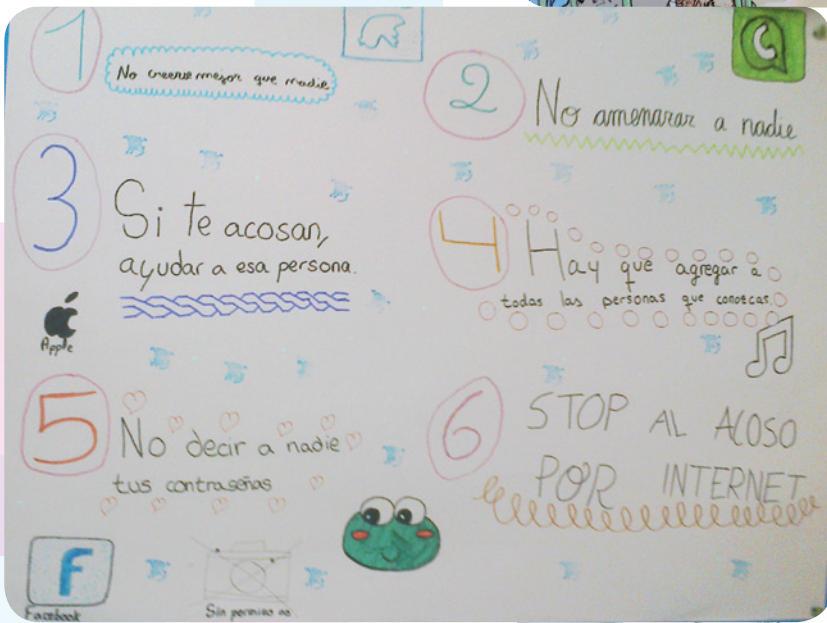 1
No creerse mejor que nadie
2
No amenazar a nadie
3
Si te acosan,
ayudar a esa persona.
Apple
4
Hay que agregar a
todas las personas que conozcas.
5
No decir a nadie
tus contraseñas
6
STOP AL ACOSO
POR INTERNET
f
Facebook
Sin permiso no